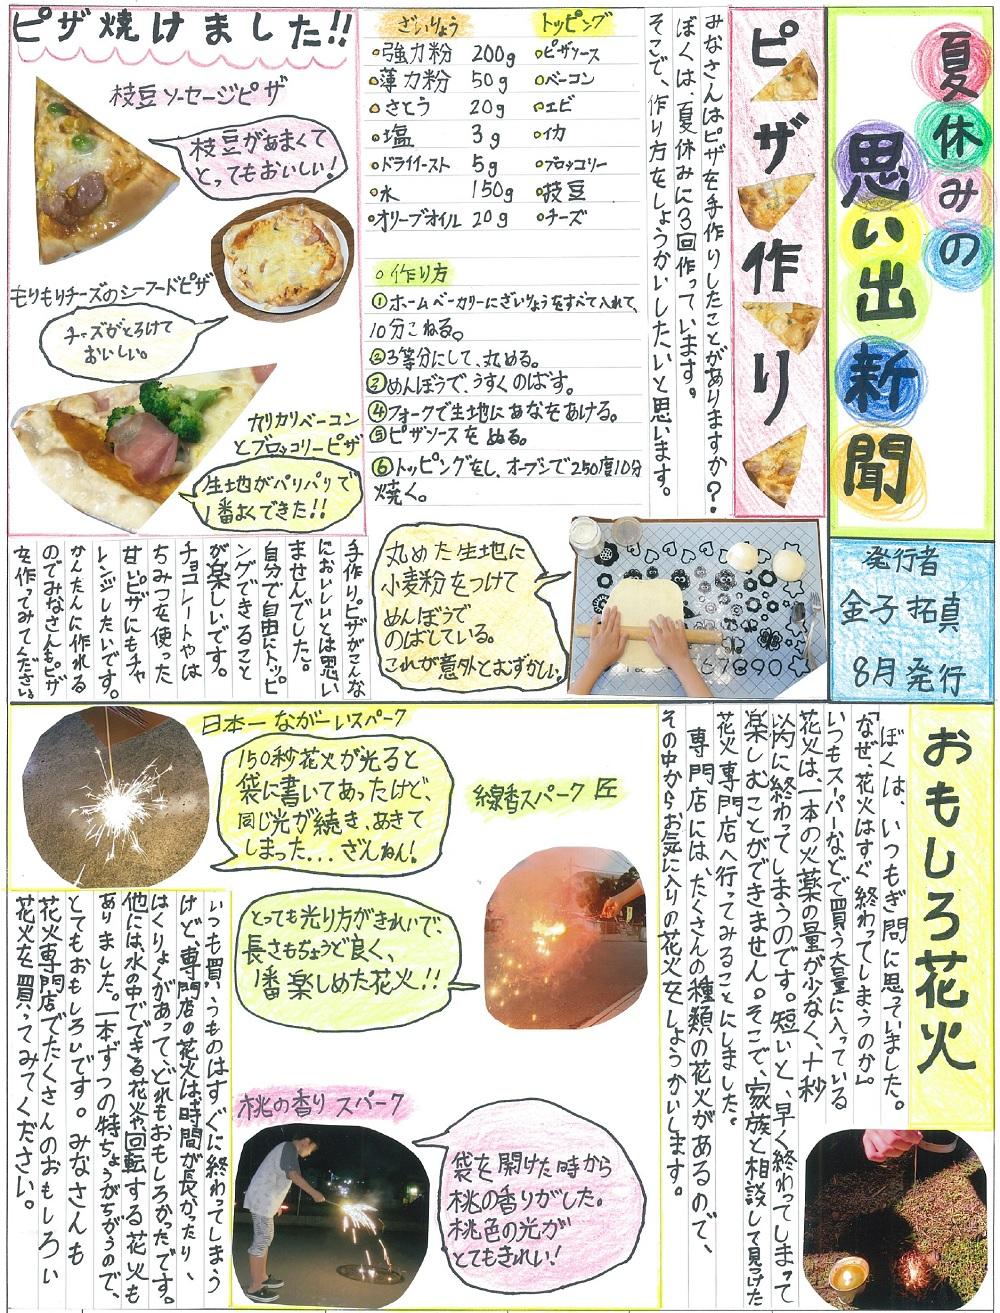 夏休みの
思い出新聞
発行者
金子拓真
8月発行
ピザ作り
みなさんはピザを手作りしたことがありますか?
ぼくは、夏休みに3回作っています。
そこで、作り方をしょうかいしたいと思います。
ざいりょう
強力粉 200g
薄力粉 50g
さとう 20g
塩 3g
ドライイースト 5g
水 150g
オリーブオイル 20g
トッピング
ピザソース
ベーコン
エビ
イカ
ブロッコリー
枝豆
チーズ
作り方
①ホームベーカリーにざいりょうをすべて入れて、
10分こねる。
②3等分にして、丸める。
③めんぼうで、うすくのばす。
④フォークで生地にあなをあける。
⑤ピザソースをぬる。
⑥トッピングをし、オーブンで250度10分
焼く。
ピザ焼けました!!
枝豆ソーセージピザ
枝豆があまくて
とってもおいしい!
もりもりチーズのシーフードピザ
チーズがとろけて
おいしい。
カリカリベーコン
とブロッコリーピザ
生地がパリパリで
1番よくできた!!
丸めた生地に
小麦粉をつけて
めんぼうで
のばしている。
これが意外とむずかしい。
手作りピザがこんな
においしいとは思い
ませんでした。
自分で自由にトッピ
ングできること
が楽しいです。
チョコレートやは
ちみつを使った
甘ピザにもチャ
レンジしたいです。
かんたんに作れる
のでみなさんもピザ
を作ってみてください。
おもしろ花火
ぼくは、いつもぎ問に思っていました。
「なぜ、花火はすぐ終わってしまうのか」
いつもスーパーなどで買う大量に入っている
花火は、一本の火薬の量が少なく、十秒
以内に終わってしまうのです。短いと、早く終わってしまって
楽しむことができません。そこで、家族と相談して見つけた
花火専門店へ行ってみることにしました。
専門店には、たくさんの種類の花火があるので、
その中からお気に入りの花火をしょうかいします。
日本一ながーいスパーク
150秒花火が光ると
袋に書いてあったけど、
同じ光が続き、あきて
しまった...ざんねん!
線香スパーク匠
とっても光り方がきれいで、
長さもちょうど良く、
1番楽しめた花火!!
桃の香りスパーク
袋を開けた時から
桃の香りがした。
桃色の光が
とてもきれい!
いつも買ううものはすぐに終わってしまう
けど、専門店の花火は、時間が長かったり、
はくりょくがあって、どれもおもしろかったです。
他には、水の中でできる花火や回転する花火も
ありました。一本ずつの特ちょうがちがうので、
とてもおもしろいです。みなさんも
花火専門店でたくさんのおもしろい
花火を買ってみてください。